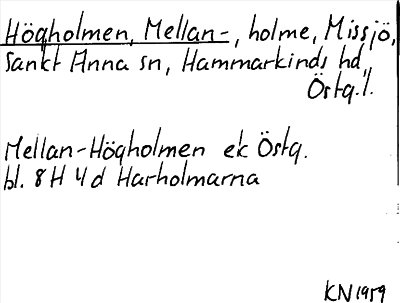 Högholmen, Mellan-, holme, Missjö,
Sankt Anna sn, Hammarkinds hd,
Östg. l.
Mellan-Högholmen ek Östg.
bl. 8 H 4 d Harholmarna
KN 1959